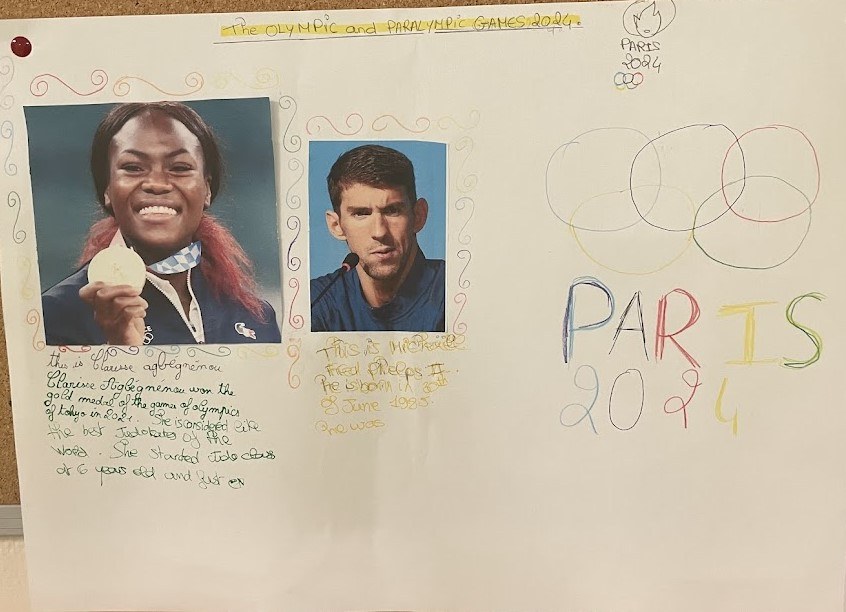 The OLYMPIC and PARALYMPIC GAMES 2024.
PARIS
2024
PARIS
2024
this is Clarisse agbégnénou
Clarisse Agbégnenou won the
gold medal of the games of olympics
of tokyo in 2021. She is considered like
the best Judokates of the
Word. She started Judo class
at 6 years old and just
This is
Fred Phelps II.
He is born in
of June 1985.
he was